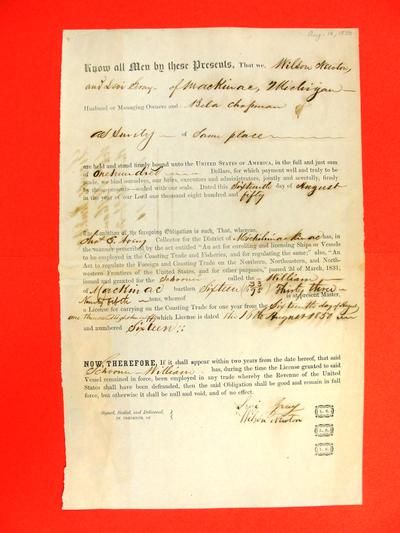 Aug. 16, 1850
Know all Men by these Presents, That we, Wilson Newton,
and Levi Gray of Mackinac, Michigan
Husband or Managing Owners and Bela Chapman
as Surety of Same place
are held and stand firmly bound unto the UNITED STATES OF AMERICA, in the full and just sum
of One hundred Dollars, for which payment well and truly to be
made, we bind ourselves, our heirs, executors and administrators, jointly and severally, firmly
by these presents—sealed with our seals. Dated this Sixteenth day of August
in the year of our Lord one thousand eight hundred and fifty
The Condition of the foregoing Obligation is such, That, whereas,
Collector for the District of Michilimackinac has, in
the manner prescribed by the act entitled "An act for enrolling and licensing Ships or Vessels
to be employed in the Coasting Trade and Fisheries, and for regulating the same; also, "An
Act to regulate the Foreign and Coasting Trade on the Northern, Northeastern, and North-
western Frontiers of the United States, and for other purposes," passed 2d of March, 1831,
issued and granted for the Schooner called the William
of Mackinac burthen Sixteen Thirty three
Ninety fifths tons, whereof is at present Master,
a License for carrying on the Coasting Trade for one year from the Sixteenth day of August
one thousand eight hundred & fifty which License is dated the 16th August 1850
and numbered Sixteen
NOW, THEREFORE, If it shall appear within two years from the date hereof, that said
Schooner William has, during the time the License granted to said
Vessel remained in force, been employed in any trade whereby the Revenue of the United
States shall have been defrauded, then the said Obligation shall be good and remain in full
force, but otherwise it shall be null and void, and of no effect.
Signed, Sealed, and Delivered,
IN PRESENCE OF
Levi Gray
Wilson Newton
L. S.
L. S.
L. S.